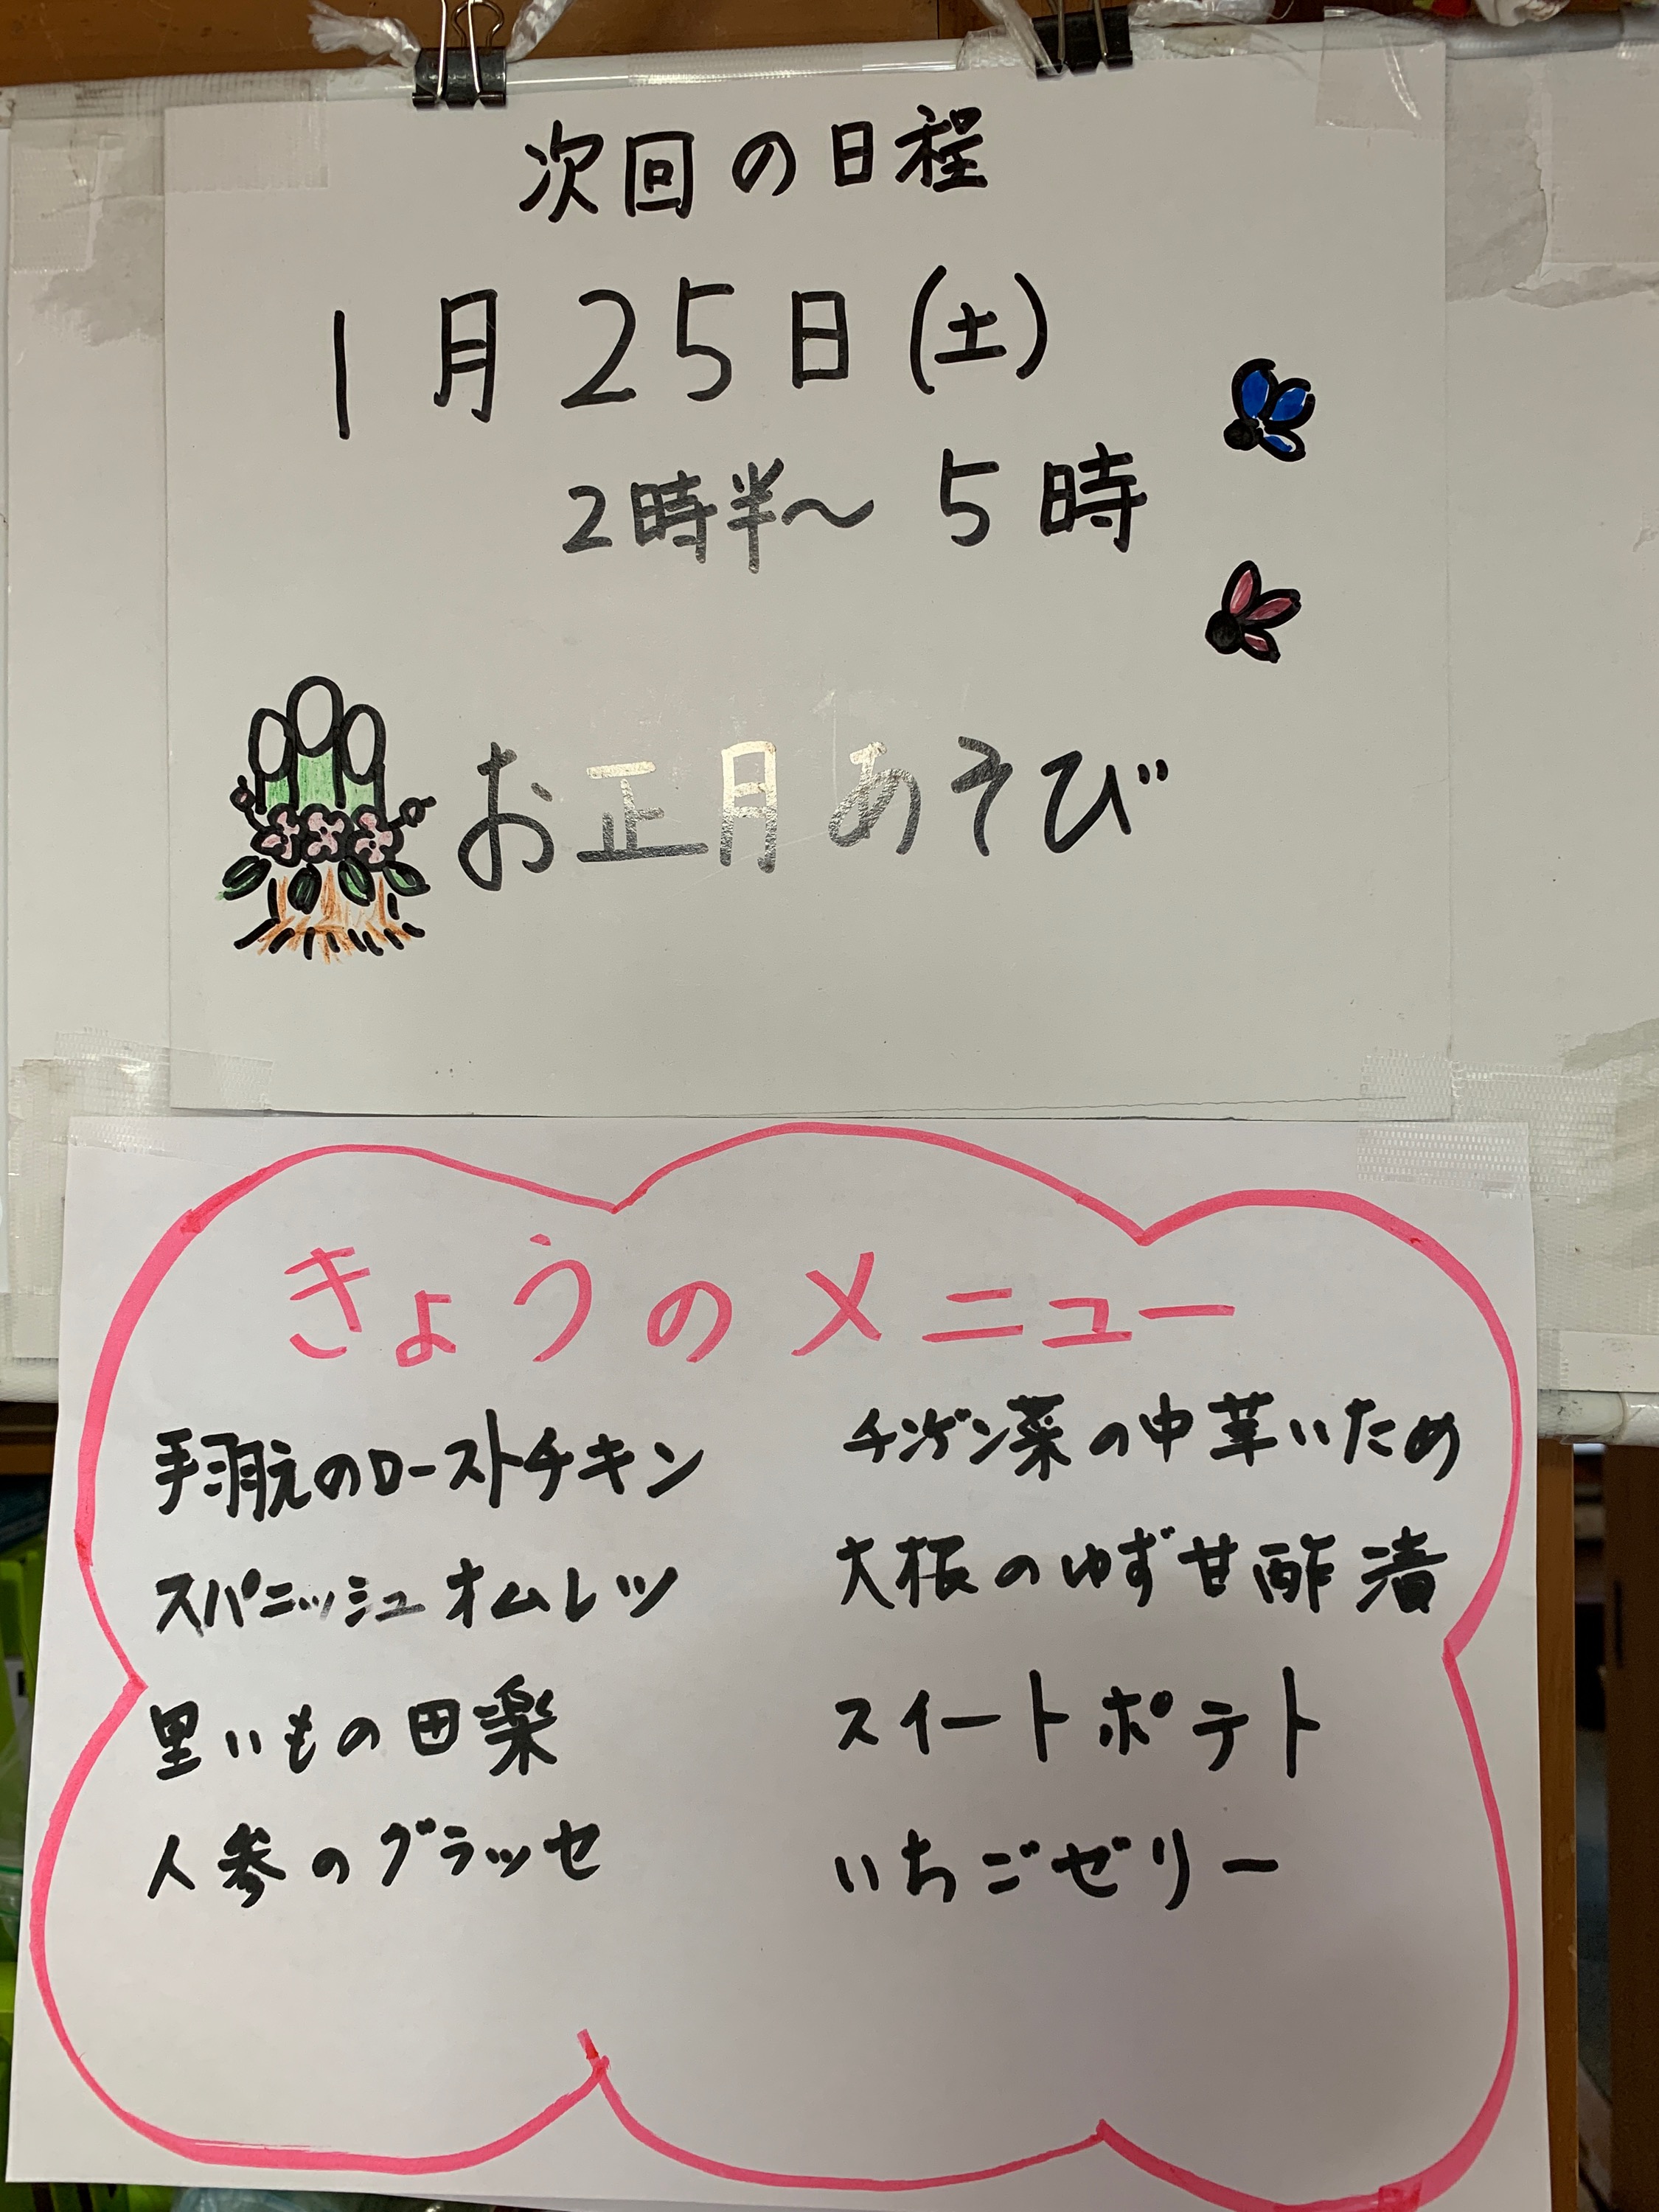 次回の日程
1月25日(土)
2時半〜5時
お正月あそび
きょうのメニュー
手羽元のローストチキン
スパニッシュオムレツ
里いもの田楽
人参のグラッセ
チンゲン菜の中華いため
大根のゆず甘酢漬
スイートポテト
いちごゼリー